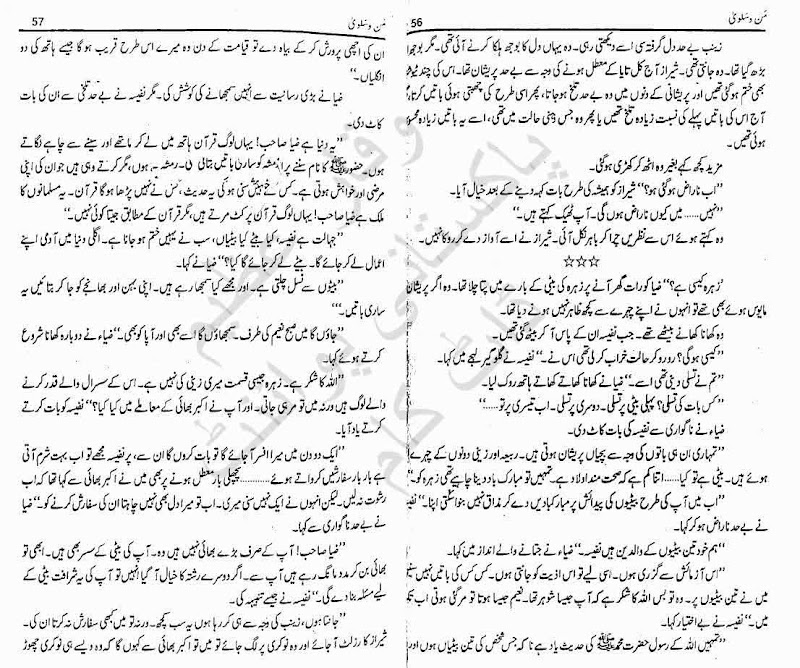 من و سلویٰ 56
زینب بے حد دل گرفتہ سی اسے دیکھتی رہی۔ وہ یہاں دل کا بوجھ ہلکا کرنے آئی تھی۔ مگر بوجھ
بڑھ گیا تھا۔ وہ جانتی تھی۔ شیراز آج کل تایا کے معطل ہونے کی وجہ سے بے حد پریشان تھا۔ اس کی چند
بھی ختم ہو گئی تھیں اور پریشانی کے دنوں میں وہ بے حد تلخ ہو جاتا، پھر اسی طرح کی چھتی ہوئی باتیں کرتا
آج اس کی باتیں پہلے کی نسبت زیادہ تلخ تھا یا پھر وہ جس ذہنی حالت میں تھی، اسے یہ باتیں زیادہ محسوس
ہوئی تھیں۔
مزید کچھ کہے بغیر وہ اٹھ کر کھڑی ہو گئی۔
”اب ناراض ہو گئی ہو؟“ شیراز کو ہمیشہ کی طرح بات کہہ دینے کے بعد خیال آیا۔
”نہیں ...... میں کیوں ناراض ہوں گی۔ آپ ٹھیک کہتے ہیں۔“
وہ کہتے ہوئے اس سے نظریں چرا کر باہر نکل آئی۔ شیراز نے اسے آواز دے کر روکا نہیں۔
☆☆☆
”زہرہ کیسی ہے؟“ ضیا کو رات گھر آنے پر زہرہ کی بیٹی کے بارے میں پتا چلا تھا۔ وہ اگر پریشان
مایوس ہوئے بھی تھے تو انہوں نے اپنے چہرے سے کچھ ظاہر نہیں ہونے دیا تھا۔
وہ کھانا کھانے بیٹھے تھے۔ جب نفیسہ ان کے پاس آ کر بیٹھ گئی تھیں۔
”کیسی ہوگی؟ رو رو کر حالت خراب کر لی تھی اس نے۔“ نفیسہ نے گلوگیر لہجے میں کہا۔
”تم نے تسلی دینی تھی اسے۔“ ضیا نے کھانا کھاتے کھاتے ہاتھ روک لیا۔
”کس بات کی تسلی؟ پہلی بیٹی پر تسلی۔ دوسری پر تسلی۔ اب تیسری پر تو......“
ضیاء نے ناگواری سے نفیسہ کی بات کاٹ دی۔
”تمہاری ان ہی باتوں کی وجہ سے بچیاں پریشان ہوتی ہیں۔ ربیعہ اور زینی دونوں کے چہرے
ہوئے ہیں۔ بیٹی ہے تو کیا...... اتنا کم ہے کہ صحت مند اولاد ہے۔ تمہیں تو مبارک باد دینا چاہیے تھی زہرہ کو۔“
”اب میں آپ کی طرح بیٹیوں کی پیدائش پر مبارکبادیں دے کر مذاق نہیں بنوا سکتی اپنا۔“ نفیسہ
نے بے حد ناراض ہو کر کہا۔
”ہم خود تین بیٹیوں کے والدین ہیں نفیسہ۔“ ضیاء نے جتانے والے انداز میں کہا۔
”اس آزمائش سے گزری ہوں۔ اسی لیے تو اس اذیت کو جانتی ہوں۔ کس کس کی باتیں نہیں
میں نے تین بیٹیوں پر۔ وہ تو بس اللہ کا شکر ہے کہ آپ جیسا شوہر تھا۔ نعیم جیسا ہوتا تو مر گئی ہوتی اب تک
۔“ نفیسہ نے بے اختیار کہا۔
”تمہیں اللہ کے رسول حضرت محمد ﷺ کی حدیث یاد ہے نا کہ جس شخص کی تین بیٹیاں ہوں اور
57 من و سلویٰ
ان کی اچھی پرورش کر کے بیاہ دے تو قیامت کے دن وہ میرے اس طرح قریب ہو گا جیسے ہاتھ کی دو
انگلیاں۔“
ضیا نے بڑی رسانیت سے انہیں سمجھانے کی کوشش کی۔ مگر نفیسہ نے بے حد تلخی سے ان کی بات
کاٹ دی۔
”یہ دنیا ہے ضیا صاحب! یہاں لوگ قرآن ہاتھ میں لے کر ماتھے اور سینے سے چاہے لگاتے
ہوں۔ حضور ﷺ کا نام سننے پر کو ساری باتیں بتائی کی۔ ہوں، مگر کرتے وہی ہیں جو ان کی اپنی
مرضی اور خواہش ہوتی ہے۔ کس نے نہیں سنی ہو گی یہ حدیث، کس نے نہیں پڑھا ہو گا قرآن۔ یہ مسلمانوں کا
ملک ہے ضیا صاحب! یہاں لوگ قرآن پر کٹ مرتے ہیں، مگر قرآن کے مطابق جیتا کوئی نہیں۔“
”جہالت ہے نفیسہ، کیا بیٹے کیا بیٹیاں، سب نے یہیں ختم ہو جانا ہے۔ اگلی دنیا میں آدمی اپنے
اعمال لے کر جائے گا۔ بیٹے لے کر جائے گا کیا؟“ ضیا نے کہا۔
”بیٹوں سے نسل چلتی ہے۔ اور مجھے کیا سمجھا رہے ہیں۔ اپنی بہن اور بھانجے کو جا کر بتائیں یہ
ساری باتیں۔“
”جاؤں گا میں صبح نعیم کی طرف۔ سمجھاؤں گا اسے بھی اور آپا کو بھی۔“ ضیاء نے دوبارہ کھانا شروع
کرتے ہوئے کہا۔
”اللہ کا شکر ہے۔ زہرہ جیسی قسمت میری زینی کی نہیں ہے۔ اس کے سسرال والے قدر کرنے
والے لوگ ہیں ورنہ میں تو مر ہی جاتی۔ اور آپ نے اکبر بھائی کے معاملے میں کیا کیا؟“ نفیسہ کو بات کرتے
کرتے یاد آیا۔
”ایک دو دن میں میرا افسر آ جائے گا تو بات کروں گا ان سے، پر نفیسہ مجھے تو اب بہت شرم آتی
ہے بار بار سفارشیں کرواتے ہوئے...... پچھلی بار معطل ہونے پر بھی میں نے اکبر بھائی سے کہا تھا کہ اب
رشوت نہ لیں۔ لیکن انہوں نے ایک نہیں سنی میری۔ اب تو میرا دل بھی نہیں چاہتا ان کی سفارش کرنے کو۔“ ضیا
نے بے حد ناگواری سے کہا۔
”ضیا صاحب! آپ کے صرف بڑے بھائی نہیں ہیں وہ۔ آپ کی بیٹی کے سسر بھی ہیں۔ ابھی تو
بھائی بن کر مدد مانگ رہے ہیں آپ سے۔ اگر دوسرے رشتہ کا خیال آ گیا انہیں تو آپ کی یہ شرافت بیٹی کے
لیے مسئلہ بنا دے گی۔“ نفیسہ نے جیسے تنبیہہ کی۔
”جانتا ہوں، زینب کی وجہ سے ہی کر رہا ہوں یہ سب کچھ۔ ورنہ تو میں کبھی سفارش نہ کرتا ان کی۔
شیراز کا رزلٹ آ جائے اور وہ نوکری پر لگ جائے تو میں تو اکبر بھائی سے کہوں گا کہ وہ ویسے ہی نوکری چھوڑ